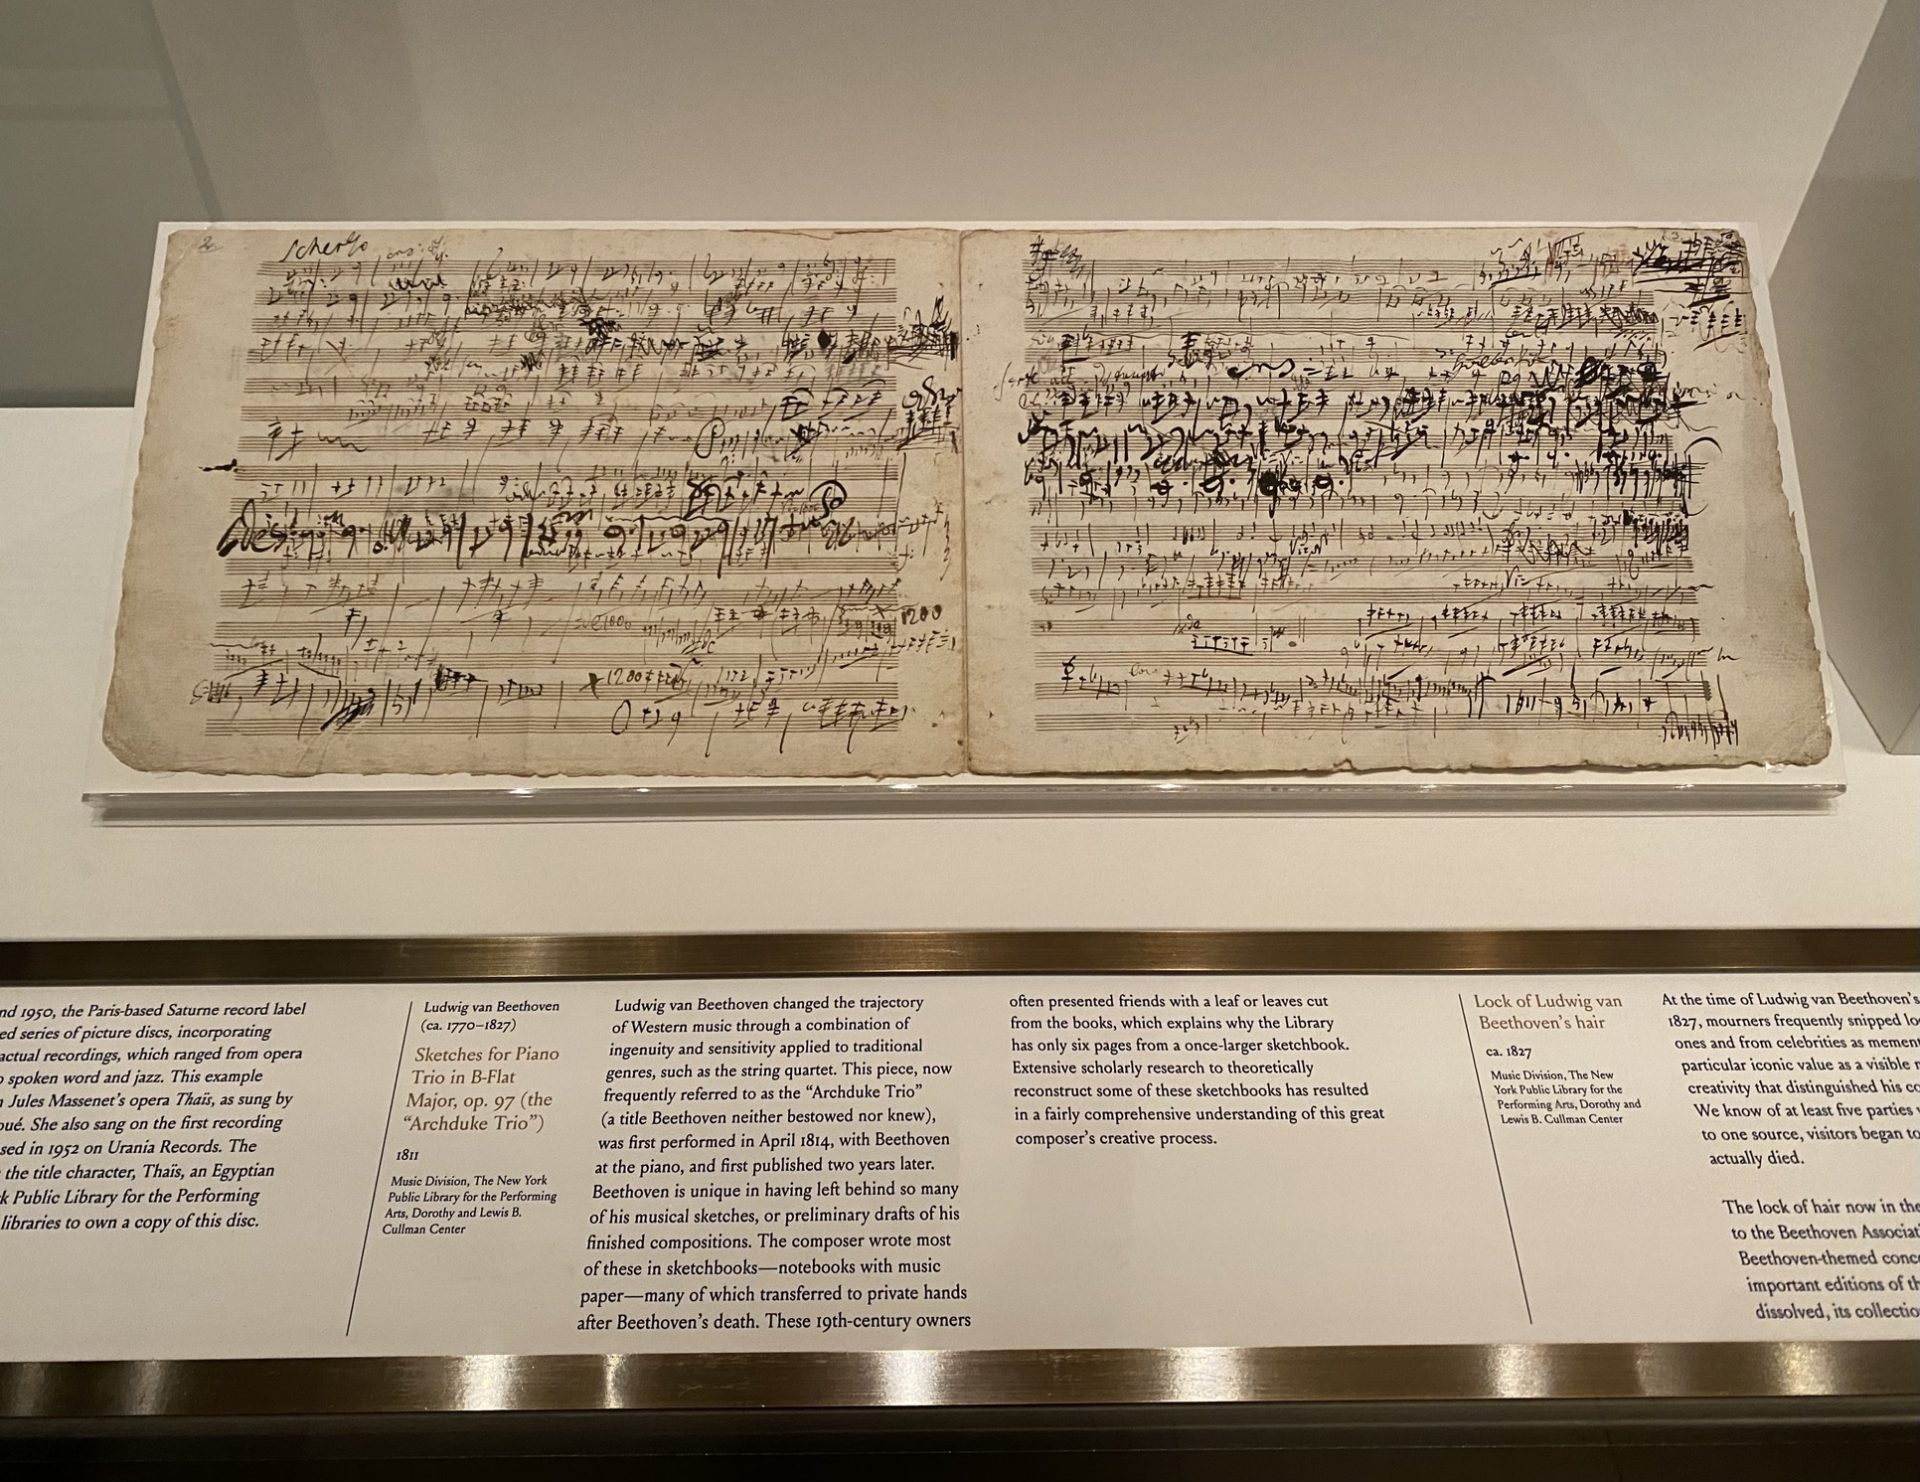 2
Scherzo
1200
1200
nd 1950, the Paris-based Saturne record label
ed series of picture discs, incorporating
actual recordings, which ranged from opera
o spoken word and jazz. This example
n Jules Massenet's opera Thaïs, as sung by
oué. She also sang on the first recording
sed in 1952 on Urania Records. The
the title character, Thaïs, an Egyptian
rk Public Library for the Performing
libraries to own a copy of this disc.
Ludwig van Beethoven
(ca. 1770–1827)
Sketches for Piano
Trio in B-Flat
Major, op. 97 (the
“Archduke Trio”)
1811
Music Division, The New York
Public Library for the Performing
Arts, Dorothy and Lewis B.
Cullman Center
Ludwig van Beethoven changed the trajectory
of Western music through a combination of
ingenuity and sensitivity applied to traditional
genres, such as the string quartet. This piece, now
frequently referred to as the “Archduke Trio”
(a title Beethoven neither bestowed nor knew),
was first performed in April 1814, with Beethoven
at the piano, and first published two years later.
Beethoven is unique in having left behind so many
of his musical sketches, or preliminary drafts of his
finished compositions. The composer wrote most
of these in sketchbooks—notebooks with music
paper—many of which transferred to private hands
after Beethoven's death. These 19th-century owners
often presented friends with a leaf or leaves cut
from the books, which explains why the Library
has only six pages from a once-larger sketchbook.
Extensive scholarly research to theoretically
reconstruct some of these sketchbooks has resulted
in a fairly comprehensive understanding of this great
composer's creative process.
Lock of Ludwig van
Beethoven's hair
ca. 1827
Music Division, The New
York Public Library for the
Performing Arts, Dorothy and
Lewis B. Cullman Center
At the time of Ludwig van Beethoven's
1827, mourners frequently snipped lo
ones and from celebrities as mement
particular iconic value as a visible r
creativity that distinguished his co
We know of at least five parties
to one source, visitors began to
actually died.
The lock of hair now in the
to the Beethoven Associat
Beethoven-themed conce
important editions of th
dissolved, its collectio